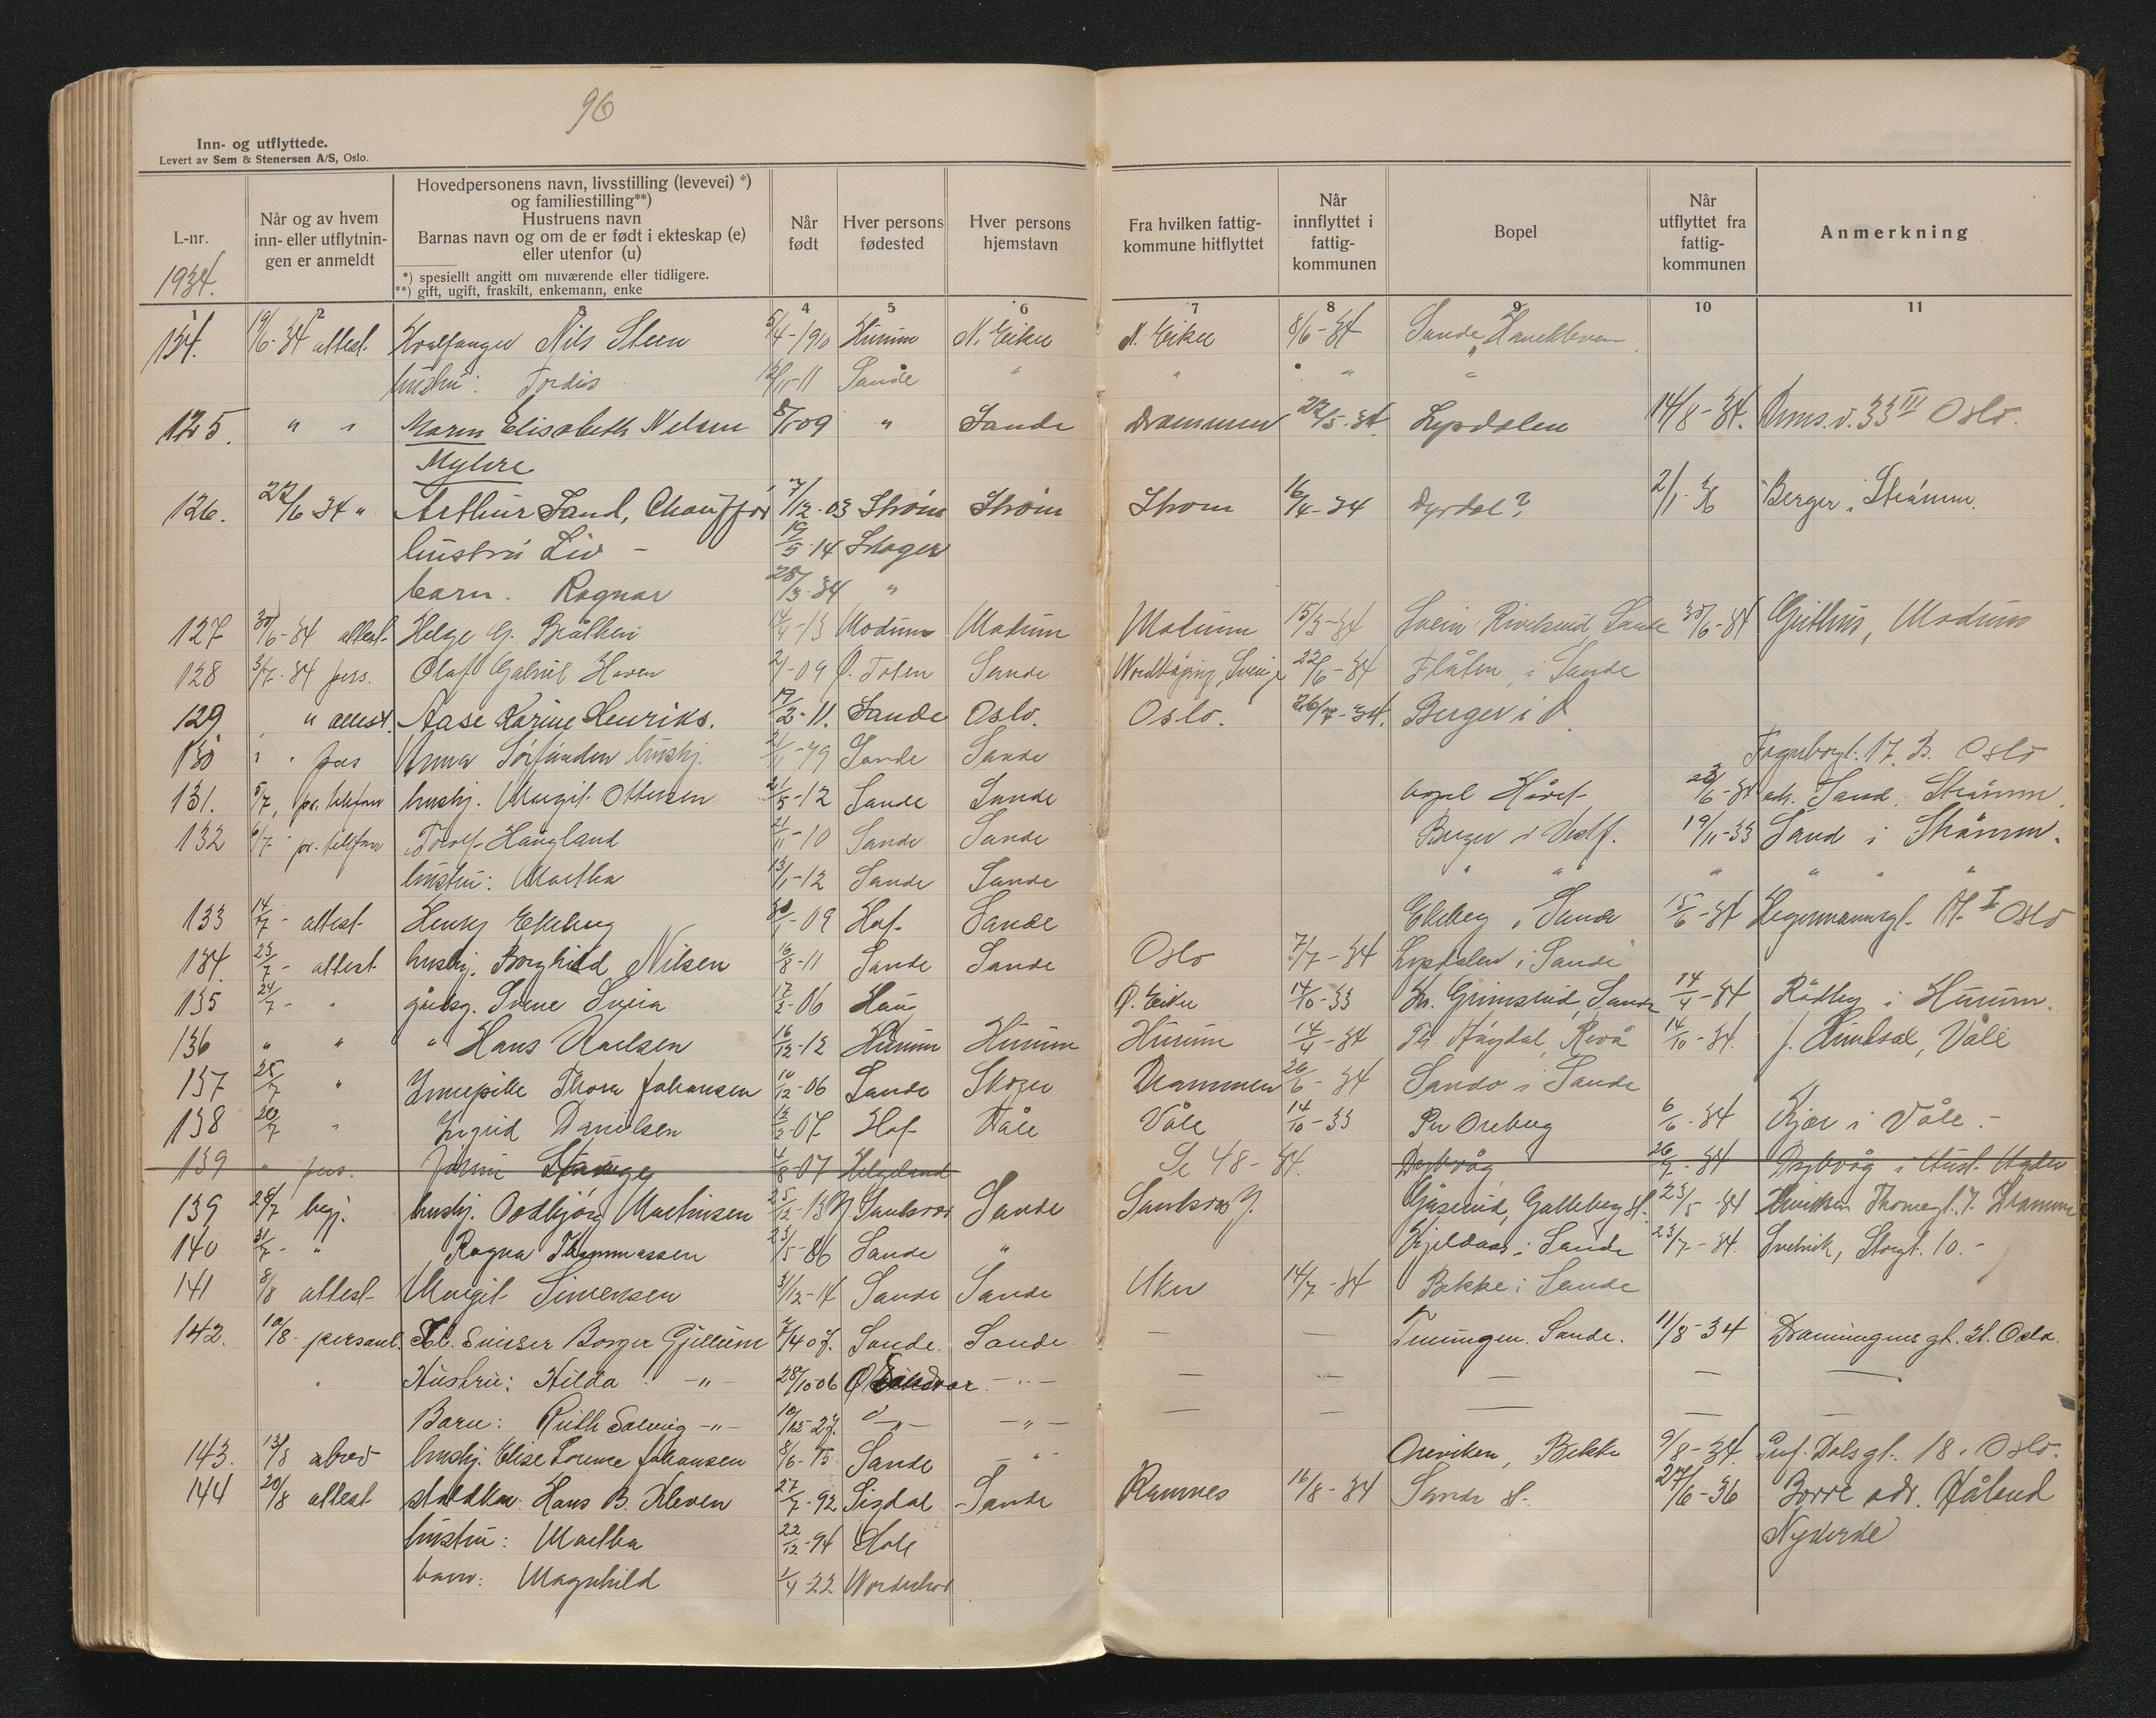 96
Inn- og utflyttede.
Levert av Sem & Stenersen A/S, Oslo.
L-nr. 1934. | Når og av hvem inn- eller utflytningen er anmeldt | Hovedpersonens navn, livsstilling (levevei) *) og familiestilling**) Hustruens navn Barnas navn og om de er født i ekteskap (e) eller utenfor (u) *) spesiellt angitt om nuværende eller tidligere. **) gift, ugift, fraskilt, enkemann, enke | Når født | Hver persons fødested | Hver persons hjemstavn | Fra hvilken fattigkommune hitflyttet | Når innflyttet i fattigkommunen | Bopel | Når utflyttet fra fattigkommunen | Anmerkning
1 2 4 5 6 7 8 9 10 11
19/6-34 attest. Hvalfanger Nils Steen 5/4-190 Hurum N. Eiker N. Eiker 8/6-34 Sande
hustru: Tordis Sande " " " "
125. " " Maren Elisabeth Nilsen 8/1-09 " Sande Drammen 22/5-34. Lysdalen 14/8-34. 33 III Oslo.
Myhre
126. 22/6 34 " Arthur Sand, Chauffør 7/12-03 Strøm Strøm Strøm 16/4-34 Dyrdal? 2/1-36 Berger i Strömm.
hustru Liv - 19/5-14 Skoger
barn. Ragnar 28/3-34 "
127 30/6-34 attest. Helge G. Bråthen 14/4-13 Modum Modum Modum 15/3-34 Svein Sande 30/6-34 Geithus, Modum
128 3/7-34 pers. Olaf Gabriel Haven 2/1-09 Ø. Toten Sande Sverige 22/6-34 Flåten, i Sande
129. " attest. Aase Karine Henriks. 17/2-11. Sande Oslo. Oslo. 26/7-34. Berger i
130 " " pers Anna hushj. 2/1-79 Sande Sande Fagerborgt. 17. B. Oslo
131. 5/7, pr. telefon hushj. Margit Ottersen 21/5-12 Sande Sande bopel 23/6-34 adr. Sand, Strömm.
132 6/7- pr. telefon Torolf Haugland 21/11-10 Sande Sande Berger i Vestf. 19/11-33 Sand i Strömm.
hustru: Martha 13/1-12 Sande Sande " " " " "
133 14/7- attest Henry Ekeberg 30/1-09 Hof Sande Ekeberg i Sande 15/6-34 I Oslo
134. 23/7- attest hushj. Borghild Nilsen 16/8-11 Sande Sande Oslo 7/7-34 Lysdalen i Sande
135 24/7- " gårdsg. Sveia 17/2-06 Haug Ø. Eiker 14/10-33 Kr. Grimsrud, Sande 14/4-34 Rødby i Hurum.
136 " " " Hans Karlsen 16/12-12 Hurum Hurum Hurum 14/4-34 Th. Høgdal, Revå 14/10-34. Våle
137 25/7 " Innepike Thora Johansen 10/12-06 Sande Skoger Drammen 26/6-34 Sando i Sande
138 26/7 " Ingrid Danielsen 13/2-07 Hof Våle Våle 14/10-33 Per Oreberg 6/6-34 Kjær i Våle. -
139 " pers. Stange 4/8-07 Helgeland Se 48-34. Dypvåg 26/7-34 Dypvåg i Aust-Agder
139 28/7 begj. hushj. Oddbjörg Martinsen 25/12-13 Sandsvær Sande Sandsvær Gåserud, Galleberg st. 23/5-34 Henriksen Thornegt. 7. Drammen
140 31/7- " Ragna Thommassen 23/5-86 Sande " Kjeldaas i Sande 23/7-34. Svelvik, Storgt. 10. -
141 8/8 attest Margit Simensen 31/12-14 Sande Sande Aker 14/7-34 Bekke i Sande
142. 10/8. personl. Borger Gjellum 7/4 07. Sande. Sande. — — Sande. 11/8-34 Oslo.
Hustru: Hilda -"- 28/10 06 -"- — — — — —
Barn: Ruth Solveig -"- 10/12-27. -"- -"- — — — — —
143. 13/8 brev hushj. Elise Lorense Johansen 8/6-15 Sande -"- Oreviken, Bekke 9/8-34. Prof. Dalsgt. 18. Oslo.
144 20/8 attest Hans B. Kleven 27/7-92 Sigdal Sande Ramnes 16/8-34 Sande st. 27/6-36 Borre adr. Håland
hustru: Martha 22/12-94 Hole Nykirke
barn: Magnhild 1/4-22 Norderhov